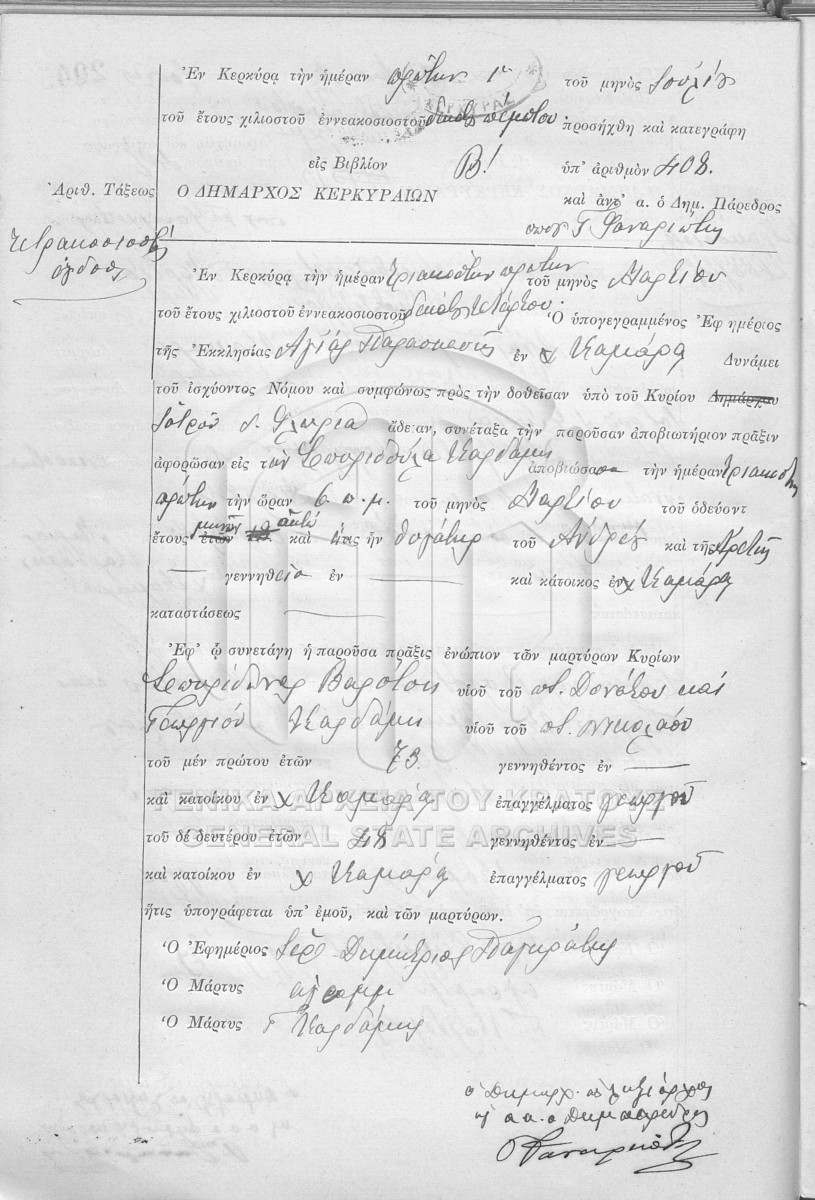 Ἐν Κερκύρᾳ τὴν ἡμέραν πρώτην 1ην τοῦ μηνὸς Ἰουλίου
τοῦ ἔτους χιλιοστοῦ ἐννεακοσιοστοῦ πέμπτου προσήχθη καὶ κατεγράφη
εἰς Βιβλίον Β! ὑπ' ἀριθμὸν 408.
Ἀριθ. Τάξεως Ο ΔΗΜΑΡΧΟΣ ΚΕΡΚΥΡΑΙΩΝ καὶ ἀντ' α. ὁ Δημ. Πάρεδρος
Γ Φαναριώτης
Τετρακοσιοστή
ὀγδόη
Ἐν Κερκύρᾳ τὴν ἡμέραν τριακοστήν πρώτην τοῦ μηνὸς Μαρτίου
τοῦ ἔτους χιλιοστοῦ ἐννεακοσιοστοῦ δεκάτου τετάρτου. Ὁ ὑπογεγραμμένος Ἐφημέριος
τῆς Ἐκκλησίας Ἁγίας Παρασκευῆς ἐν χ Καμάρᾳ Δυνάμει
τοῦ ἰσχύοντος Νόμου καὶ συμφώνως πρὸς τὴν δοθεῖσαν ὑπὸ τοῦ Κυρίου Δημάρχου
Ἰατροῦ ἄδειαν, συνέταξα τὴν παροῦσαν ἀποβιωτήριον πρᾶξιν
ἀφορῶσαν εἰς τὴν Σπυριδούλα Καρδάμη ἀποβιώσασα τὴν ἡμέραν τριακοστήν
πρώτην τὴν ὥραν 6 π.μ. τοῦ μηνὸς Μαρτίου τοῦ ὁδεύοντ
ἔτους ἐτῶν μηνῶν ὀκτώ καὶ ἥτις ἦν θυγάτηρ τοῦ Ἀνδρέου καὶ τῆς Ἀρετῆς
— γεννηθεῖσα ἐν — καὶ κάτοικος ἐν χ Καμάρᾳ
καταστάσεως —
Ἐφ' ᾧ συνετάγη ἡ παροῦσα πρᾶξις ἐνώπιον τῶν μαρτύρων Κυρίων
Σπυρίδωνος Βαρότση υἱοῦ τοῦ ποτ. Δονάτου καὶ
Γεωργίου Καρδάμη υἱοῦ τοῦ ποτ. Νικολάου
τοῦ μὲν πρώτου ἐτῶν 73 γεννηθέντος ἐν —
καὶ κατοίκου ἐν χ Καμάρᾳ ἐπαγγέλματος γεωργοῦ
τοῦ δὲ δευτέρου ἐτῶν 48 γεννηθέντος ἐν —
καὶ κατοίκου ἐν χ Καμάρᾳ ἐπαγγέλματος γεωργοῦ
ἥτις ὑπογράφεται ὑπ' ἐμοῦ, καὶ τῶν μαρτύρων.
Ὁ Ἐφημέριος Ἱερ Δημήτριος Παγκράτης
Ὁ Μάρτυς ἀγραμμ
Ὁ Μάρτυς Γ Καρδάμης
ὁ Δημαρχ.
α.α. ὁ Δημ πάρεδρος
Φαναριώτης
ΓΕΝΙΚΑ ΑΡΧΕΙΑ ΤΟΥ ΚΡΑΤΟΥΣ
GENERAL STATE ARCHIVES